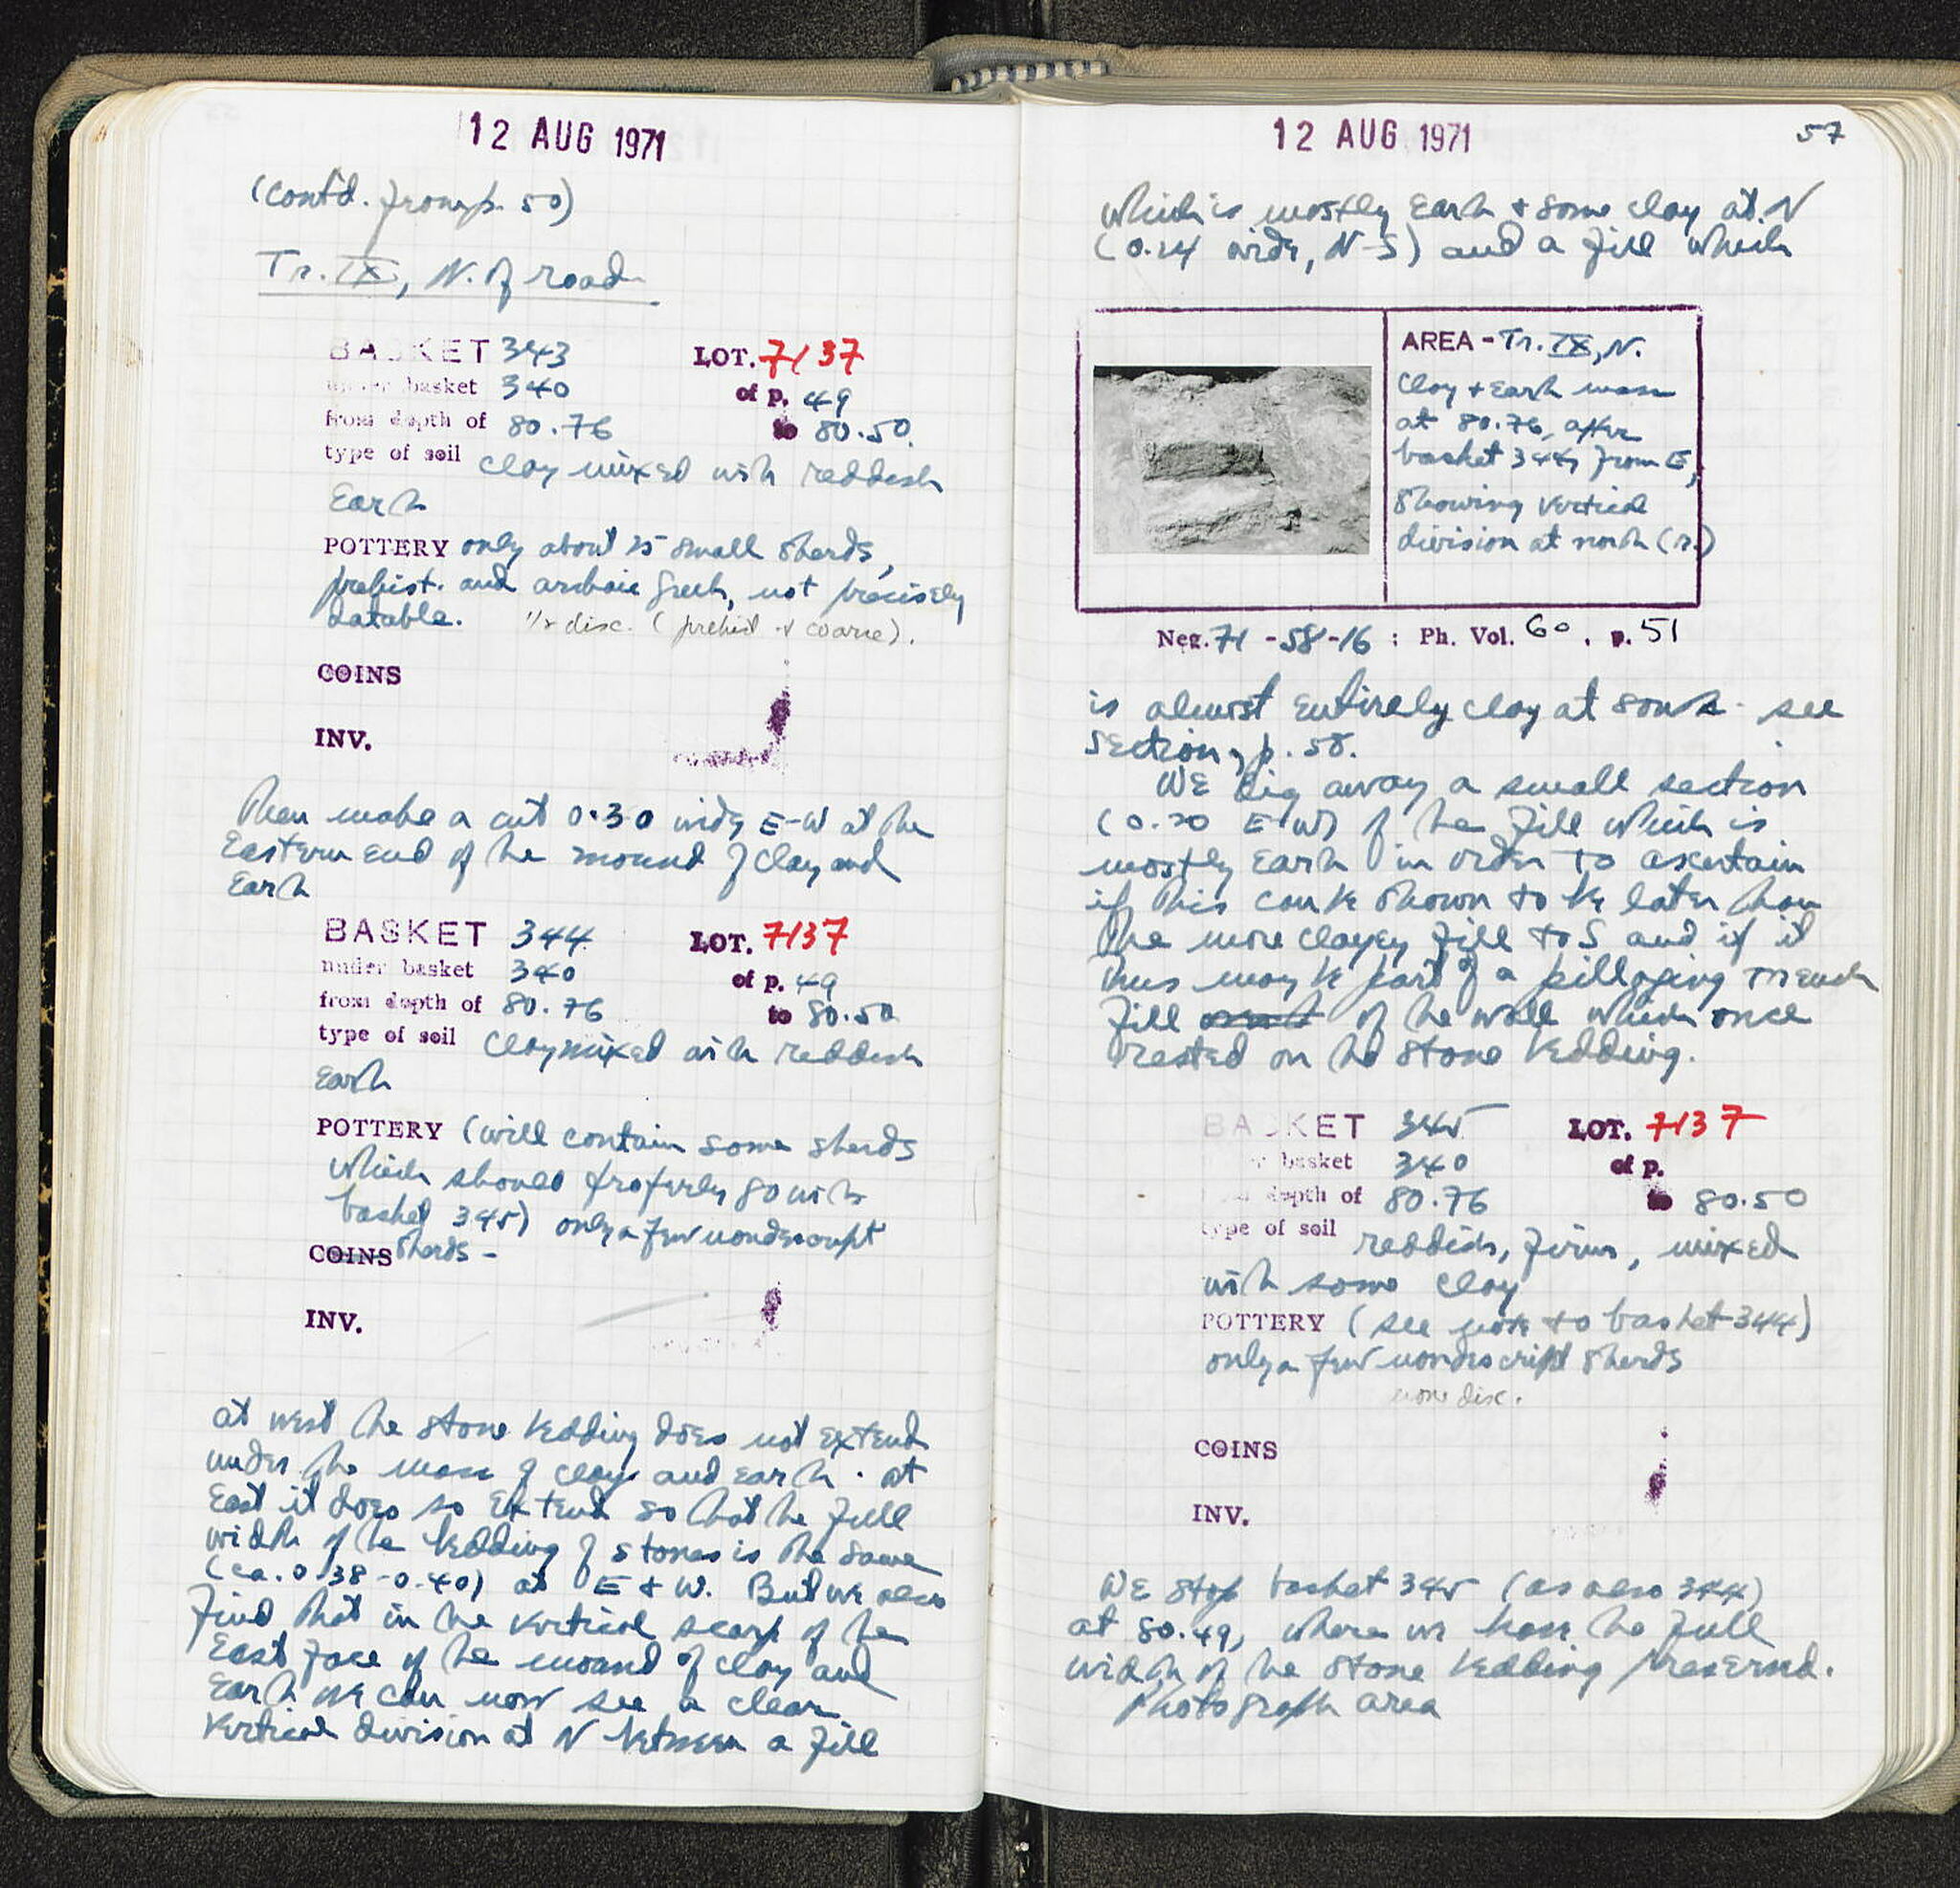 12 AUG 1971
(contd. from p. 50)
Tr. IX, N. of road
BASKET 343 LOT. 7137
under basket 340 of p. 49
from depth of 80.76 to 80.50
type of soil clay mixed with reddish
Earth
POTTERY only about 25 small sherds,
prehist. and archaic Greek, not precisely
datable. 1/2 disc. (prehist + coarse).
COINS
INV.
Then make a cut 0.30 wide E-W at the
Eastern end of the mound of clay and
Earth
BASKET 344 LOT. 7137
under basket 340 of p. 49
from depth of 80.76 to 80.50
type of soil clay mixed with reddish
Earth
POTTERY (will contain some sherds
which should properly go with
basket 345) only a few nondescript
COINS sherds -
INV.
at west the stone bedding does not extend
under the mass of clay and earth. at
East it does so extend so that the full
width of the bedding of stones is the same
(ca. 0.38-0.40) at E + W. But we also
find that in the vertical scarp of the
East face of the mound of clay and
Earth we can now see a clear
vertical division at N between a fill
12 AUG 1971 57
which is mostly Earth + some clay at N
(0.24 wide, N-S) and a fill which
AREA - Tr. IX, N.
Clay + Earth mass
at 80.76, after
basket 344, from E,
showing vertical
division at north (r.)
Neg. 71-58-16 : Ph. Vol. 60, p. 51
is almost entirely clay at south - see
section, p. 58.
We dig away a small section
(0.20 E-W) of the fill which is
mostly Earth in order to ascertain
if this can be shown to be later than
the more clayey fill to S and if it
thus may be part of a pillaging trench
fill of the wall which once
rested on the stone bedding.
BASKET 345 LOT. 7137
under basket 340 of p.
from depth of 80.76 to 80.50
type of soil reddish, firm, mixed
with some clay
POTTERY (see note to basket 344)
only a few nondescript sherds
none disc.
COINS
INV.
We stop basket 345 (as also 344)
at 80.49, where we have the full
width of the stone bedding preserved.
Photograph area